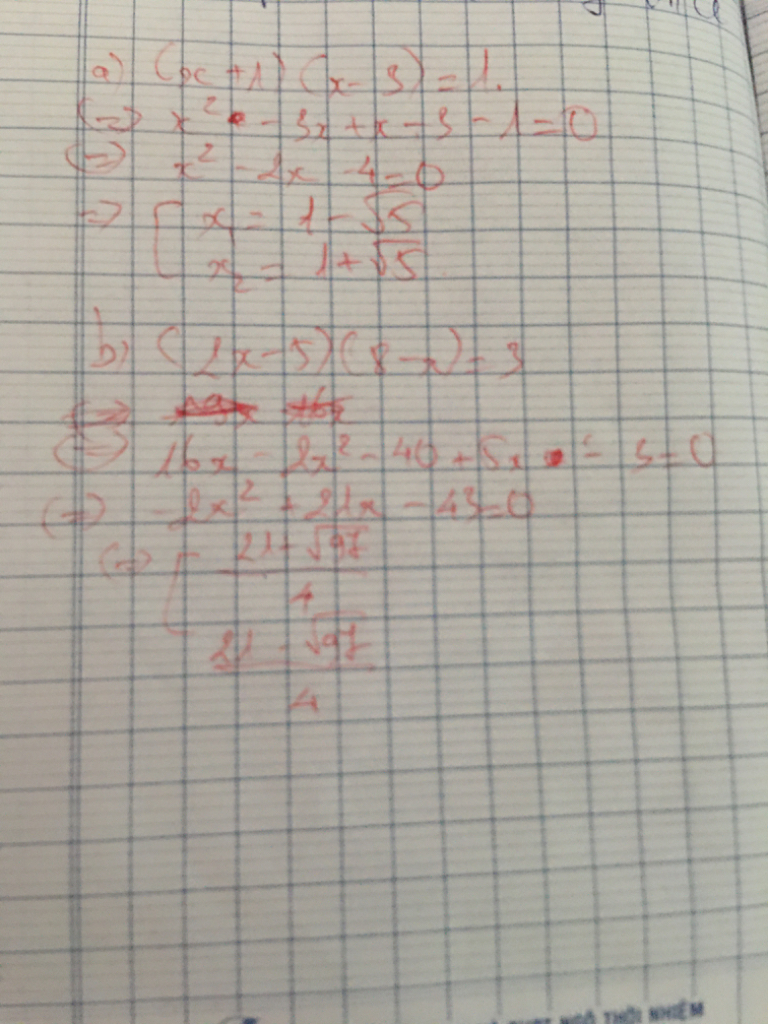 a) (x + 1) (x - 3) = 1.
(=) x² - 3x + x - 3 - 1 = 0
(=) x² - 2x - 4 = 0
=> [ x₁ = 1 - √5
x₂ = 1 + √5
b) (2x - 5)(8 - x) = 3
(=)
(=) 16x - 2x² - 40 + 5x - 3 = 0
(=) -2x² + 21x - 43 = 0
(=) [ 21 + √97
4
21 - √97
4
NGÔ THỜI NHIỆM